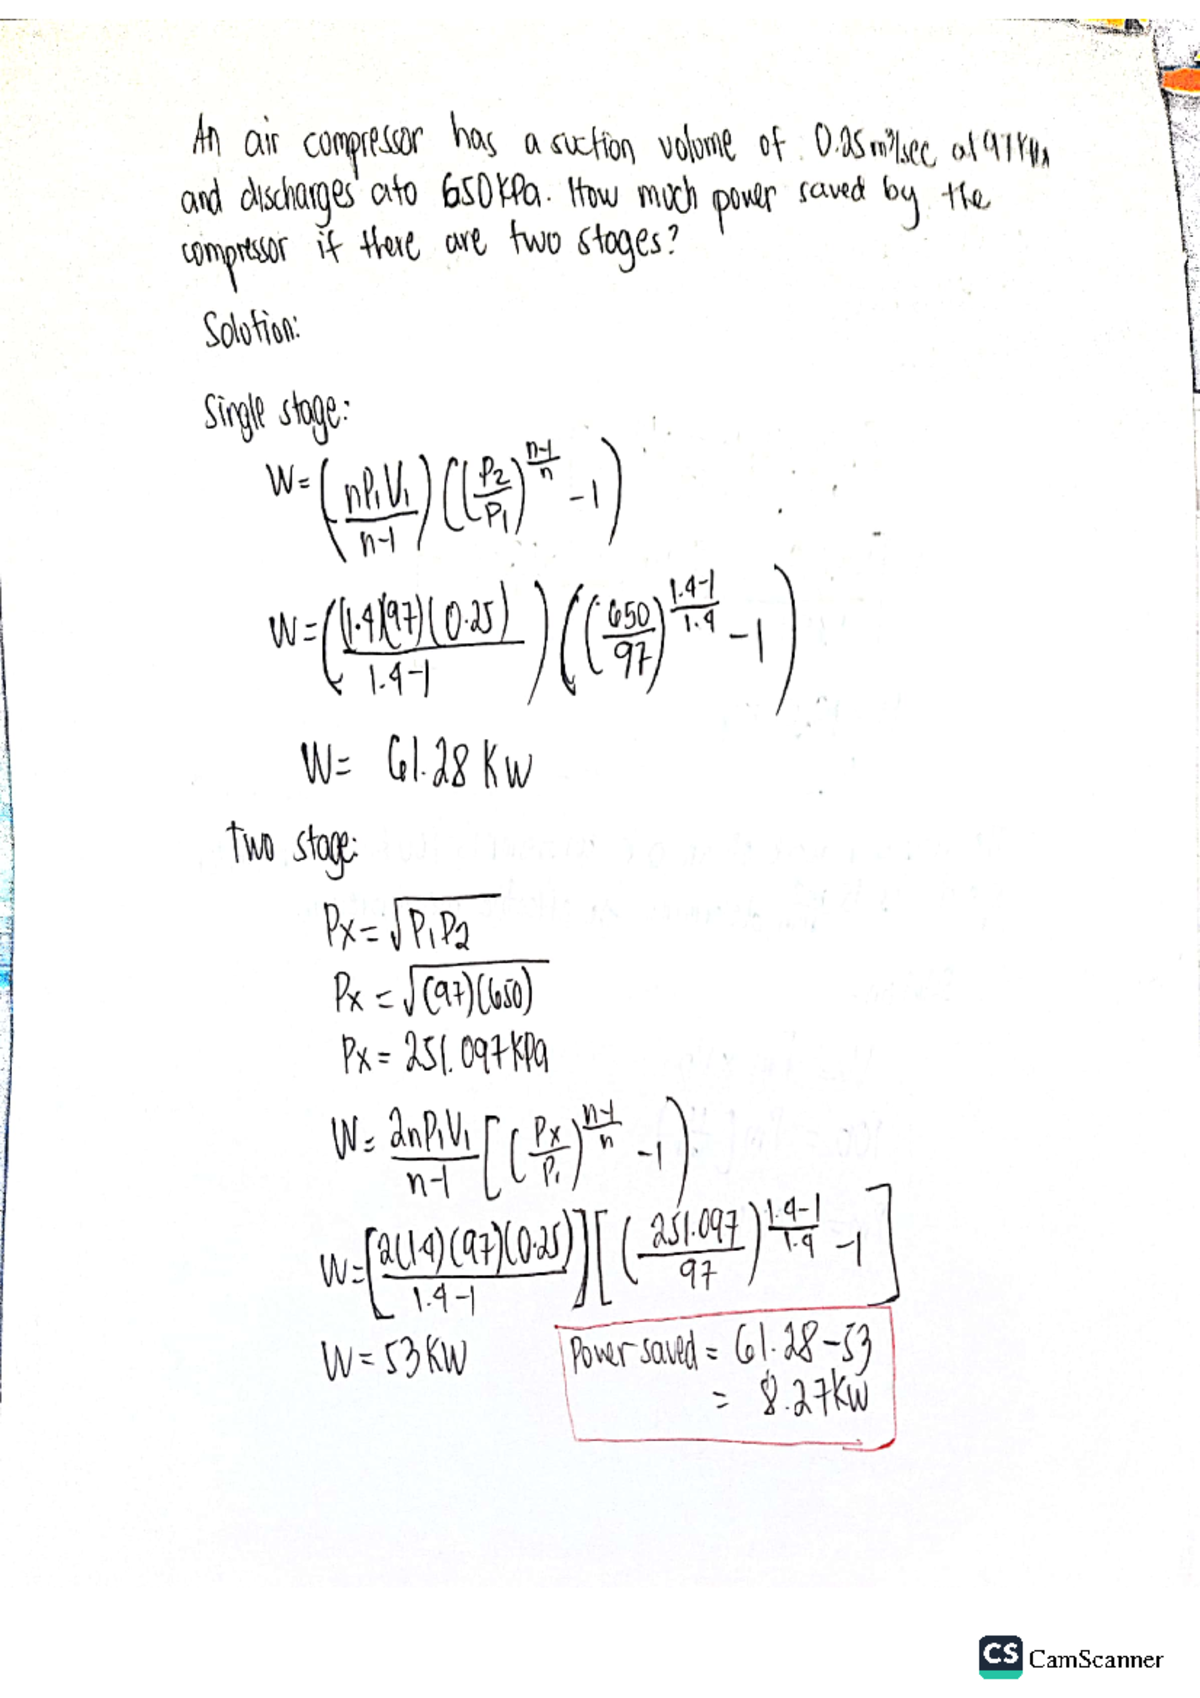 An air compressor has a suction volume of 0.25 m³/sec at 97 KPa
and discharges ato 650 KPa. How much power saved by the
compressor if there are two stages?
Solution:
Single stage:
W = (nP₁V₁ / n-1) ((P₂/P₁)^(n-1/n) - 1)
W = ((1.4)(97)(0.25) / 1.4-1) ((650/97)^(1.4-1/1.4) - 1)
W = 61.28 KW
Two stage:
Px = √P₁P₂
Px = √(97)(650)
Px = 251.097 KPa
W = 2nP₁V₁ / n-1 [(Px/P₁)^(n-1/n) - 1)
W = [2(1.4)(97)(0.25)) / 1.4-1] [(251.097/97)^(1.4-1/1.4) - 1]
W = 53 KW
Power saved = 61.28 - 53
= 8.27 KW
CS CamScanner